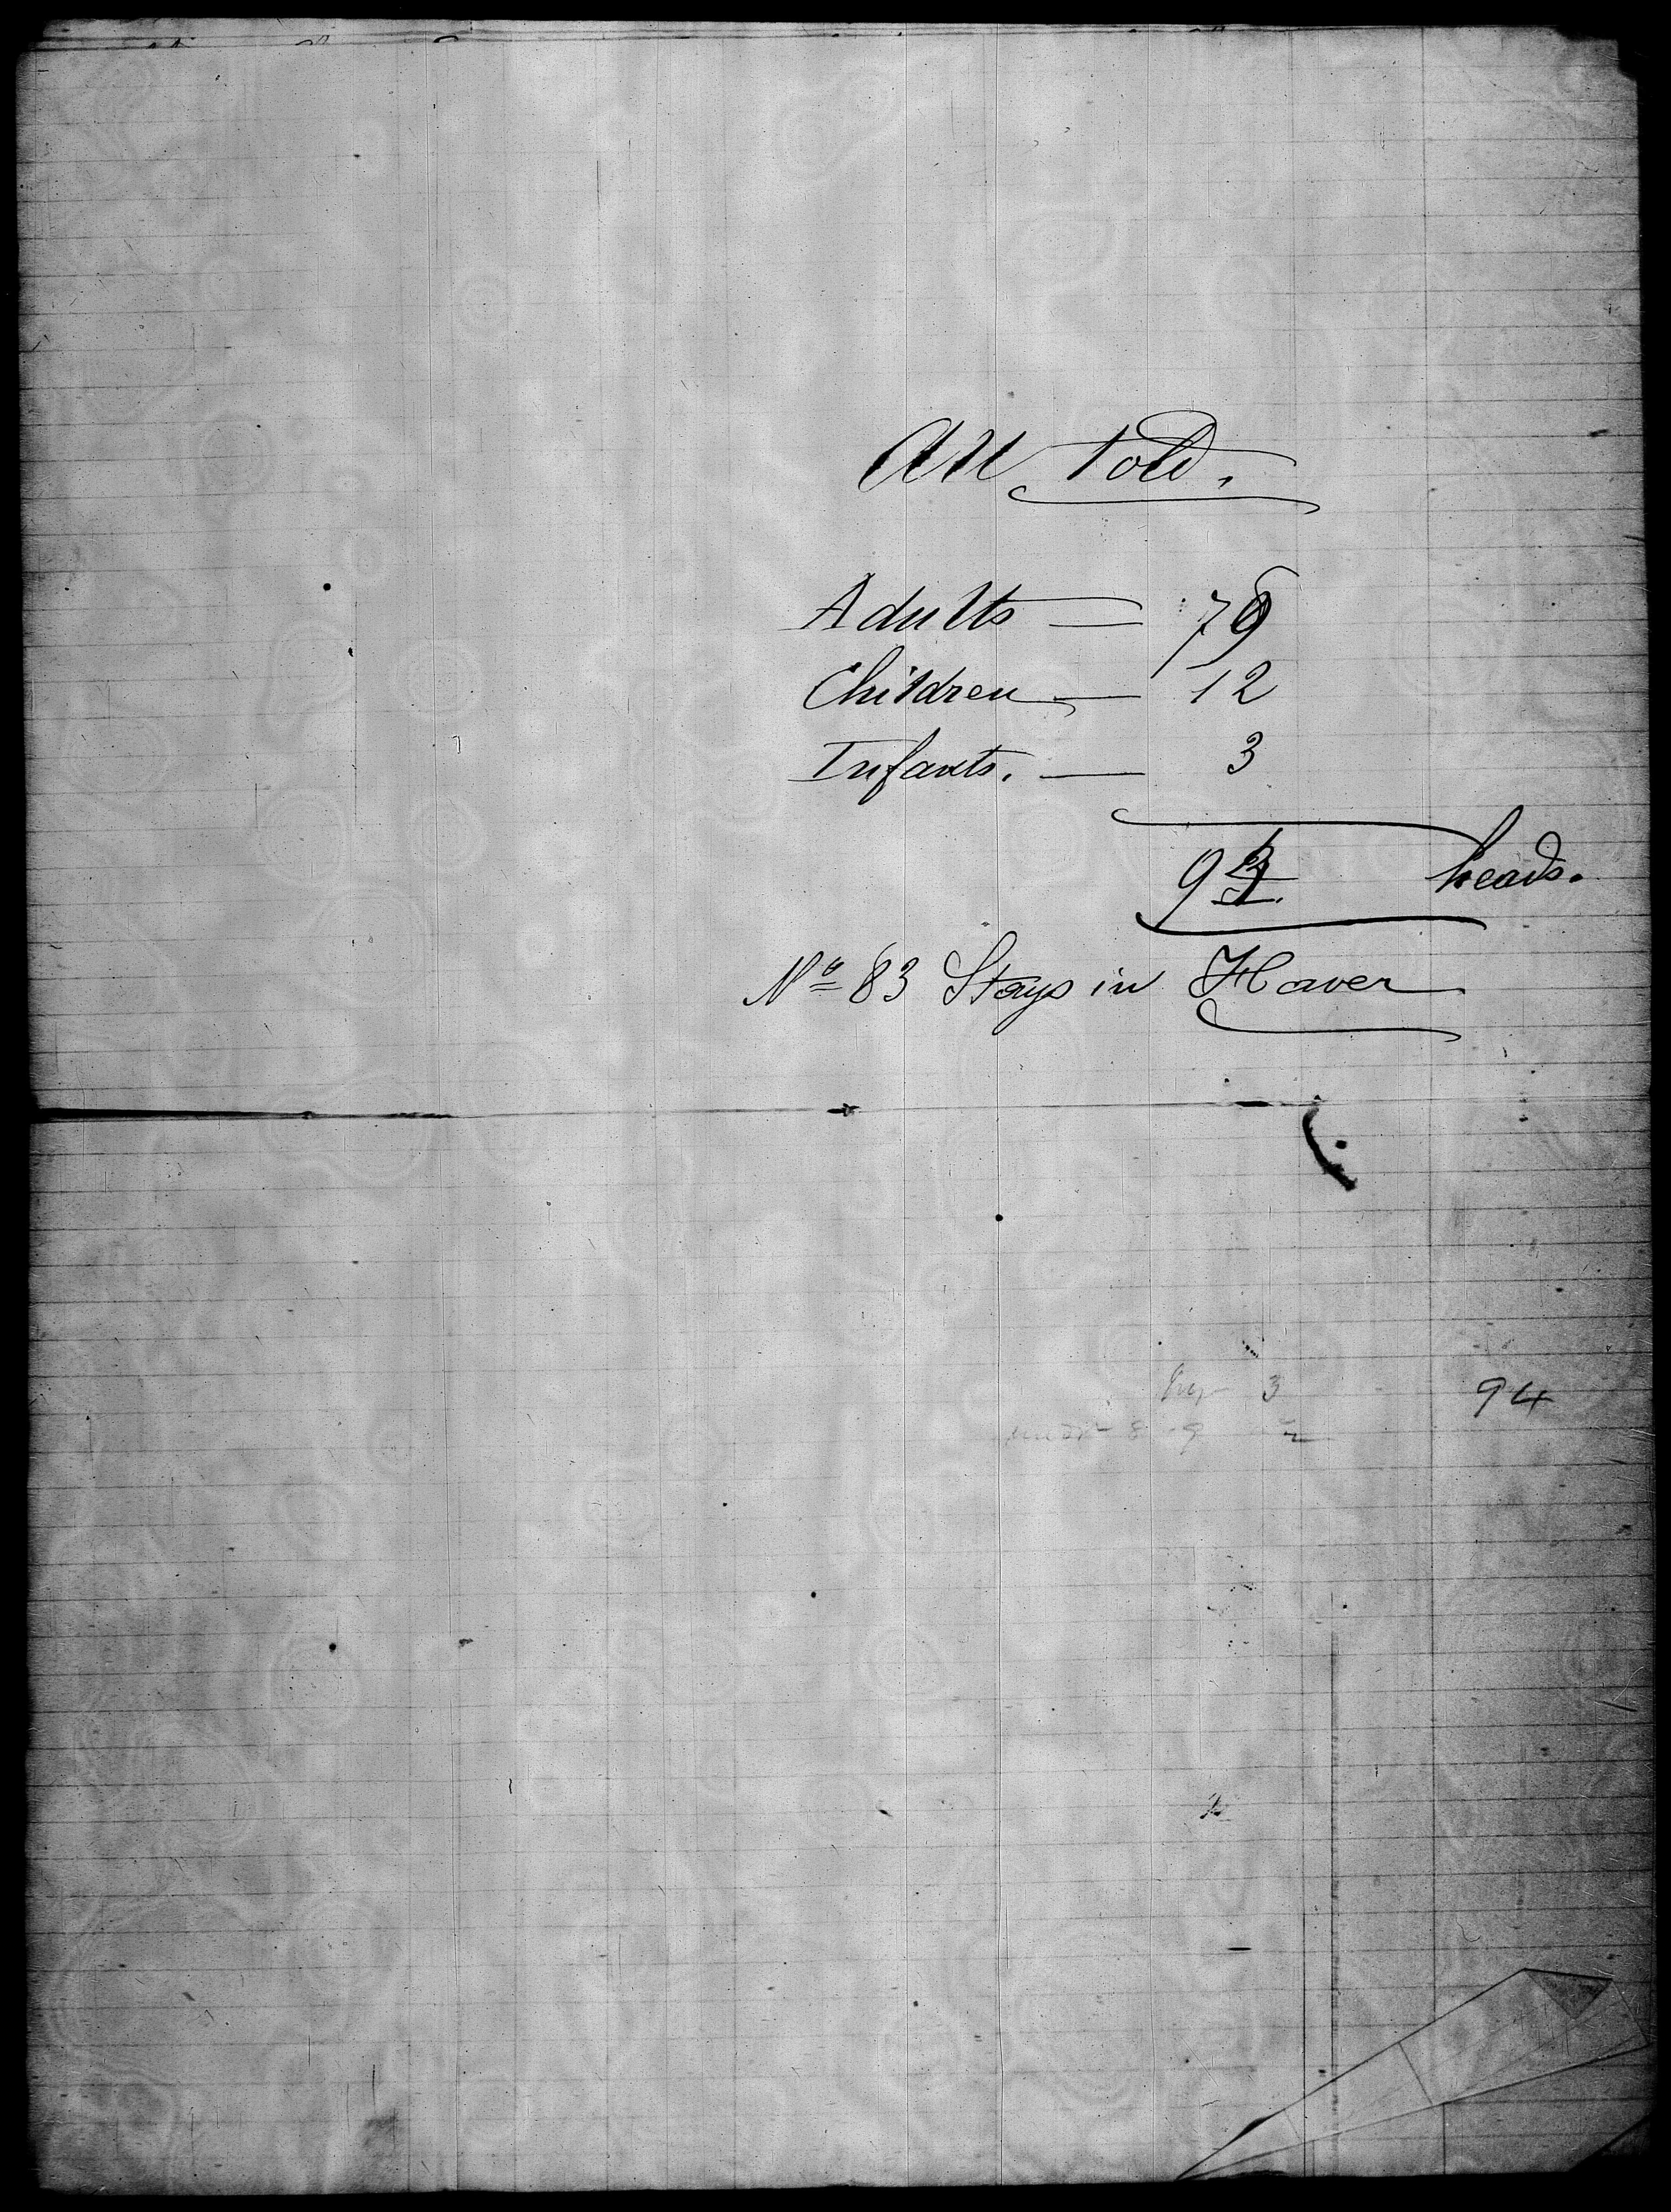 All told.
Adults — 79
Children — 12
Infants. — 3
94 heads.
No 83 Stays in Haver
3 94